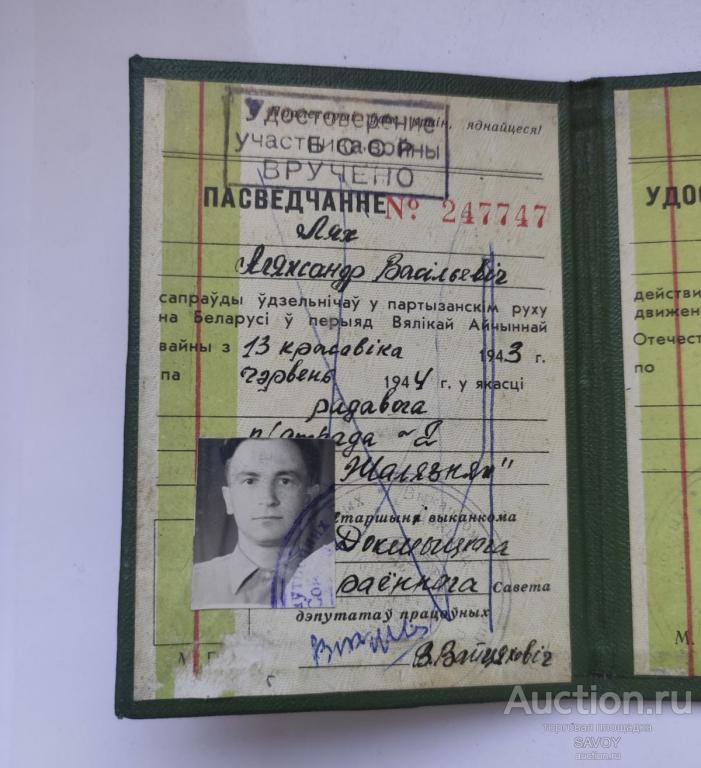 Удостоверение
яднайцеся!
участника войны
ВРУЧЕНО
ПАСВЕДЧАННЕ № 247747
Лях
Аляксандр Васільевіч
сапраўды ўдзельнічаў у партызанскім руху
на Беларусі ў перыяд Вялікай Айчыннай
вайны з 13 красавіка 1943 г.
па чэрвень 1944 г. у якасці
радавога
п/атрада
Жалязняк"
старшыні выканкома
Докшыцкага
раённага Савета
дэпутатаў працоўных
В. Вайцяховіч
УДОС
действи
движен
Отечест
по
М.
Auction.ru
торговая площадка
SAVOY
auction.ru